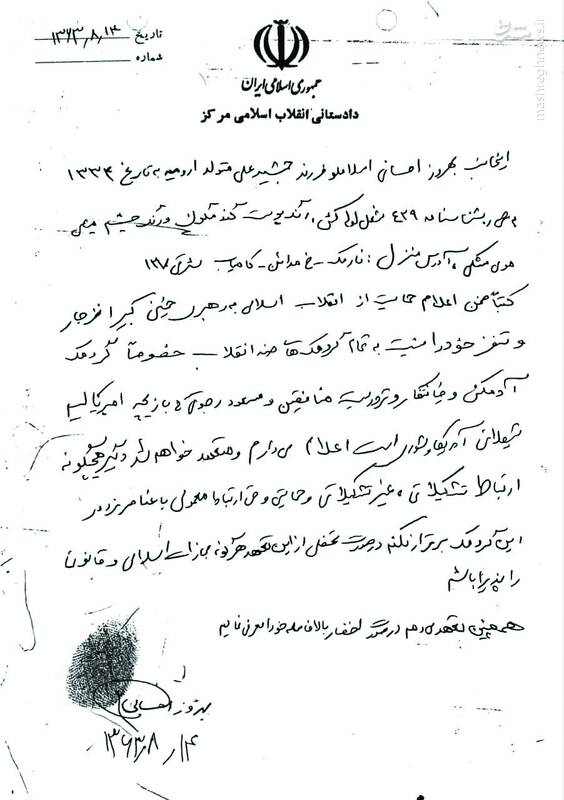 تاریخ ۱۳۶۳,۸,۱۴
شماره
جمهوری اسلامی ایران
دادستانی انقلاب اسلامی مرکز
اینجانب بهروز احسانی اسلاملو فرزند جمشیدعلی متولد ارومیه به تاریخ ۱۳۳۴
بشناسنامه ۴۲۹ شغل لوله کش، رنگ پوست گندمگون و رنگ چشم میشی
موی مشکی، آدرس منزل: نارمک - خ مدائن - کامیاب شرقی
کتباً ضمن اعلام حمایت از انقلاب اسلامی به رهبری خمینی کبیر انزجار
و تنفر خود را نسبت به تمام گروهک‌ها ضد انقلاب خصوصاً گروهک
آدمکش و جنایتکار و تروریست منافقین و مسعود رجوی بازیچه امپریالیسم
آمریکا و شوروی است اعلام می‌دارم و متعهد خواهم شد دیگر هیچگونه
ارتباط تشکیلاتی، غیر تشکیلاتی و حمایتی و حتی ارتباط معمولی با عناصر مزدور
این گروهک برقرار نکنم در صورت تخلف از این تعهد هرگونه مجازات اسلامی و قانونی
را پذیرا باشم
همچنین تعهد می‌دهم در صورت احضار بلافاصله خود را معرفی نمایم
بهروز احسانی
۱۳۶۳/۸/۱۴
mashreghnews.ir